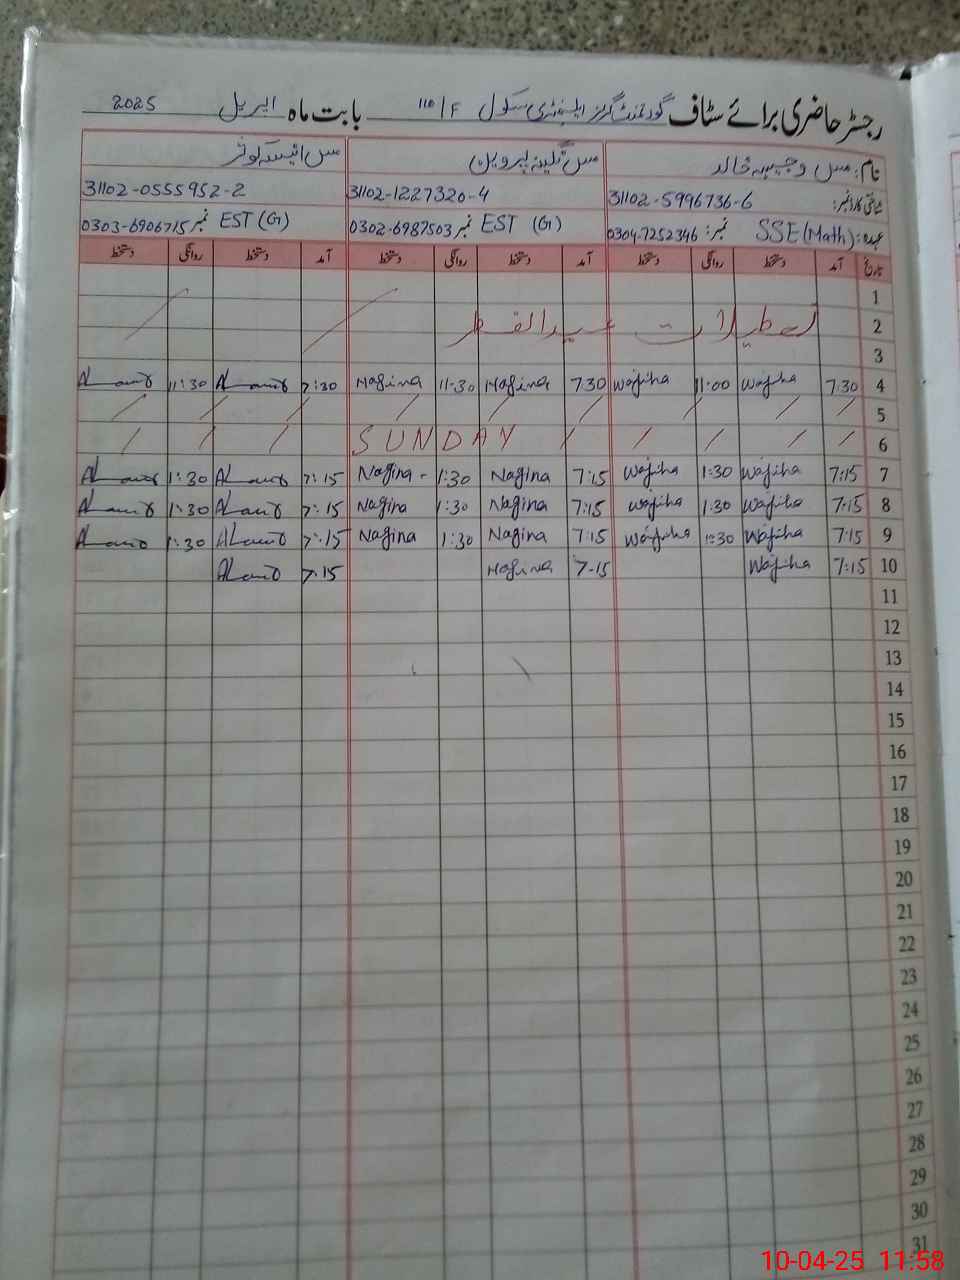 رجسٹر حاضری برائے سٹاف گورنمنٹ گرلز ایلیمنٹری سکول 110/F بابت ماہ اپریل 2025
نام: مس وجیہہ خالد مس نگینہ پروین مس انیسہ کوثر
شناختی کارڈ نمبر: 31102-5996736-6 31102-1227320-4 31102-0555952-2
عہدہ: SSE (Math) نمبر: 0304-7252346 EST (G) نمبر 0302-6987503 EST (G) نمبر 0303-6906715
تاریخ آمد دستخط روانگی دستخط آمد دستخط روانگی دستخط آمد دستخط روانگی دستخط
1
2 تعطیلات عیدالفطر
3
4 7:30 Wajiha 11:00 Wajiha 7:30 Nagina 11-30 Nagina 7:30 11:30
5
6 SUNDAY
7 7:15 Wajiha 1:30 Wajiha 7:15 Nagina 1:30 Nagina - 7:15 1:30
8 7:15 Wajiha 1:30 Wajiha 7:15 Nagina 1:30 Nagina 7:15 1:30
9 7:15 Wajiha 1:30 Wajiha 7:15 Nagina 1:30 Nagina 7:15 1:30
10 7:15 Wajiha 7-15 Nagina 7:15
11
12
13
14
15
16
17
18
19
20
21
22
23
24
25
26
27
28
29
30
31
10-04-25 11:58